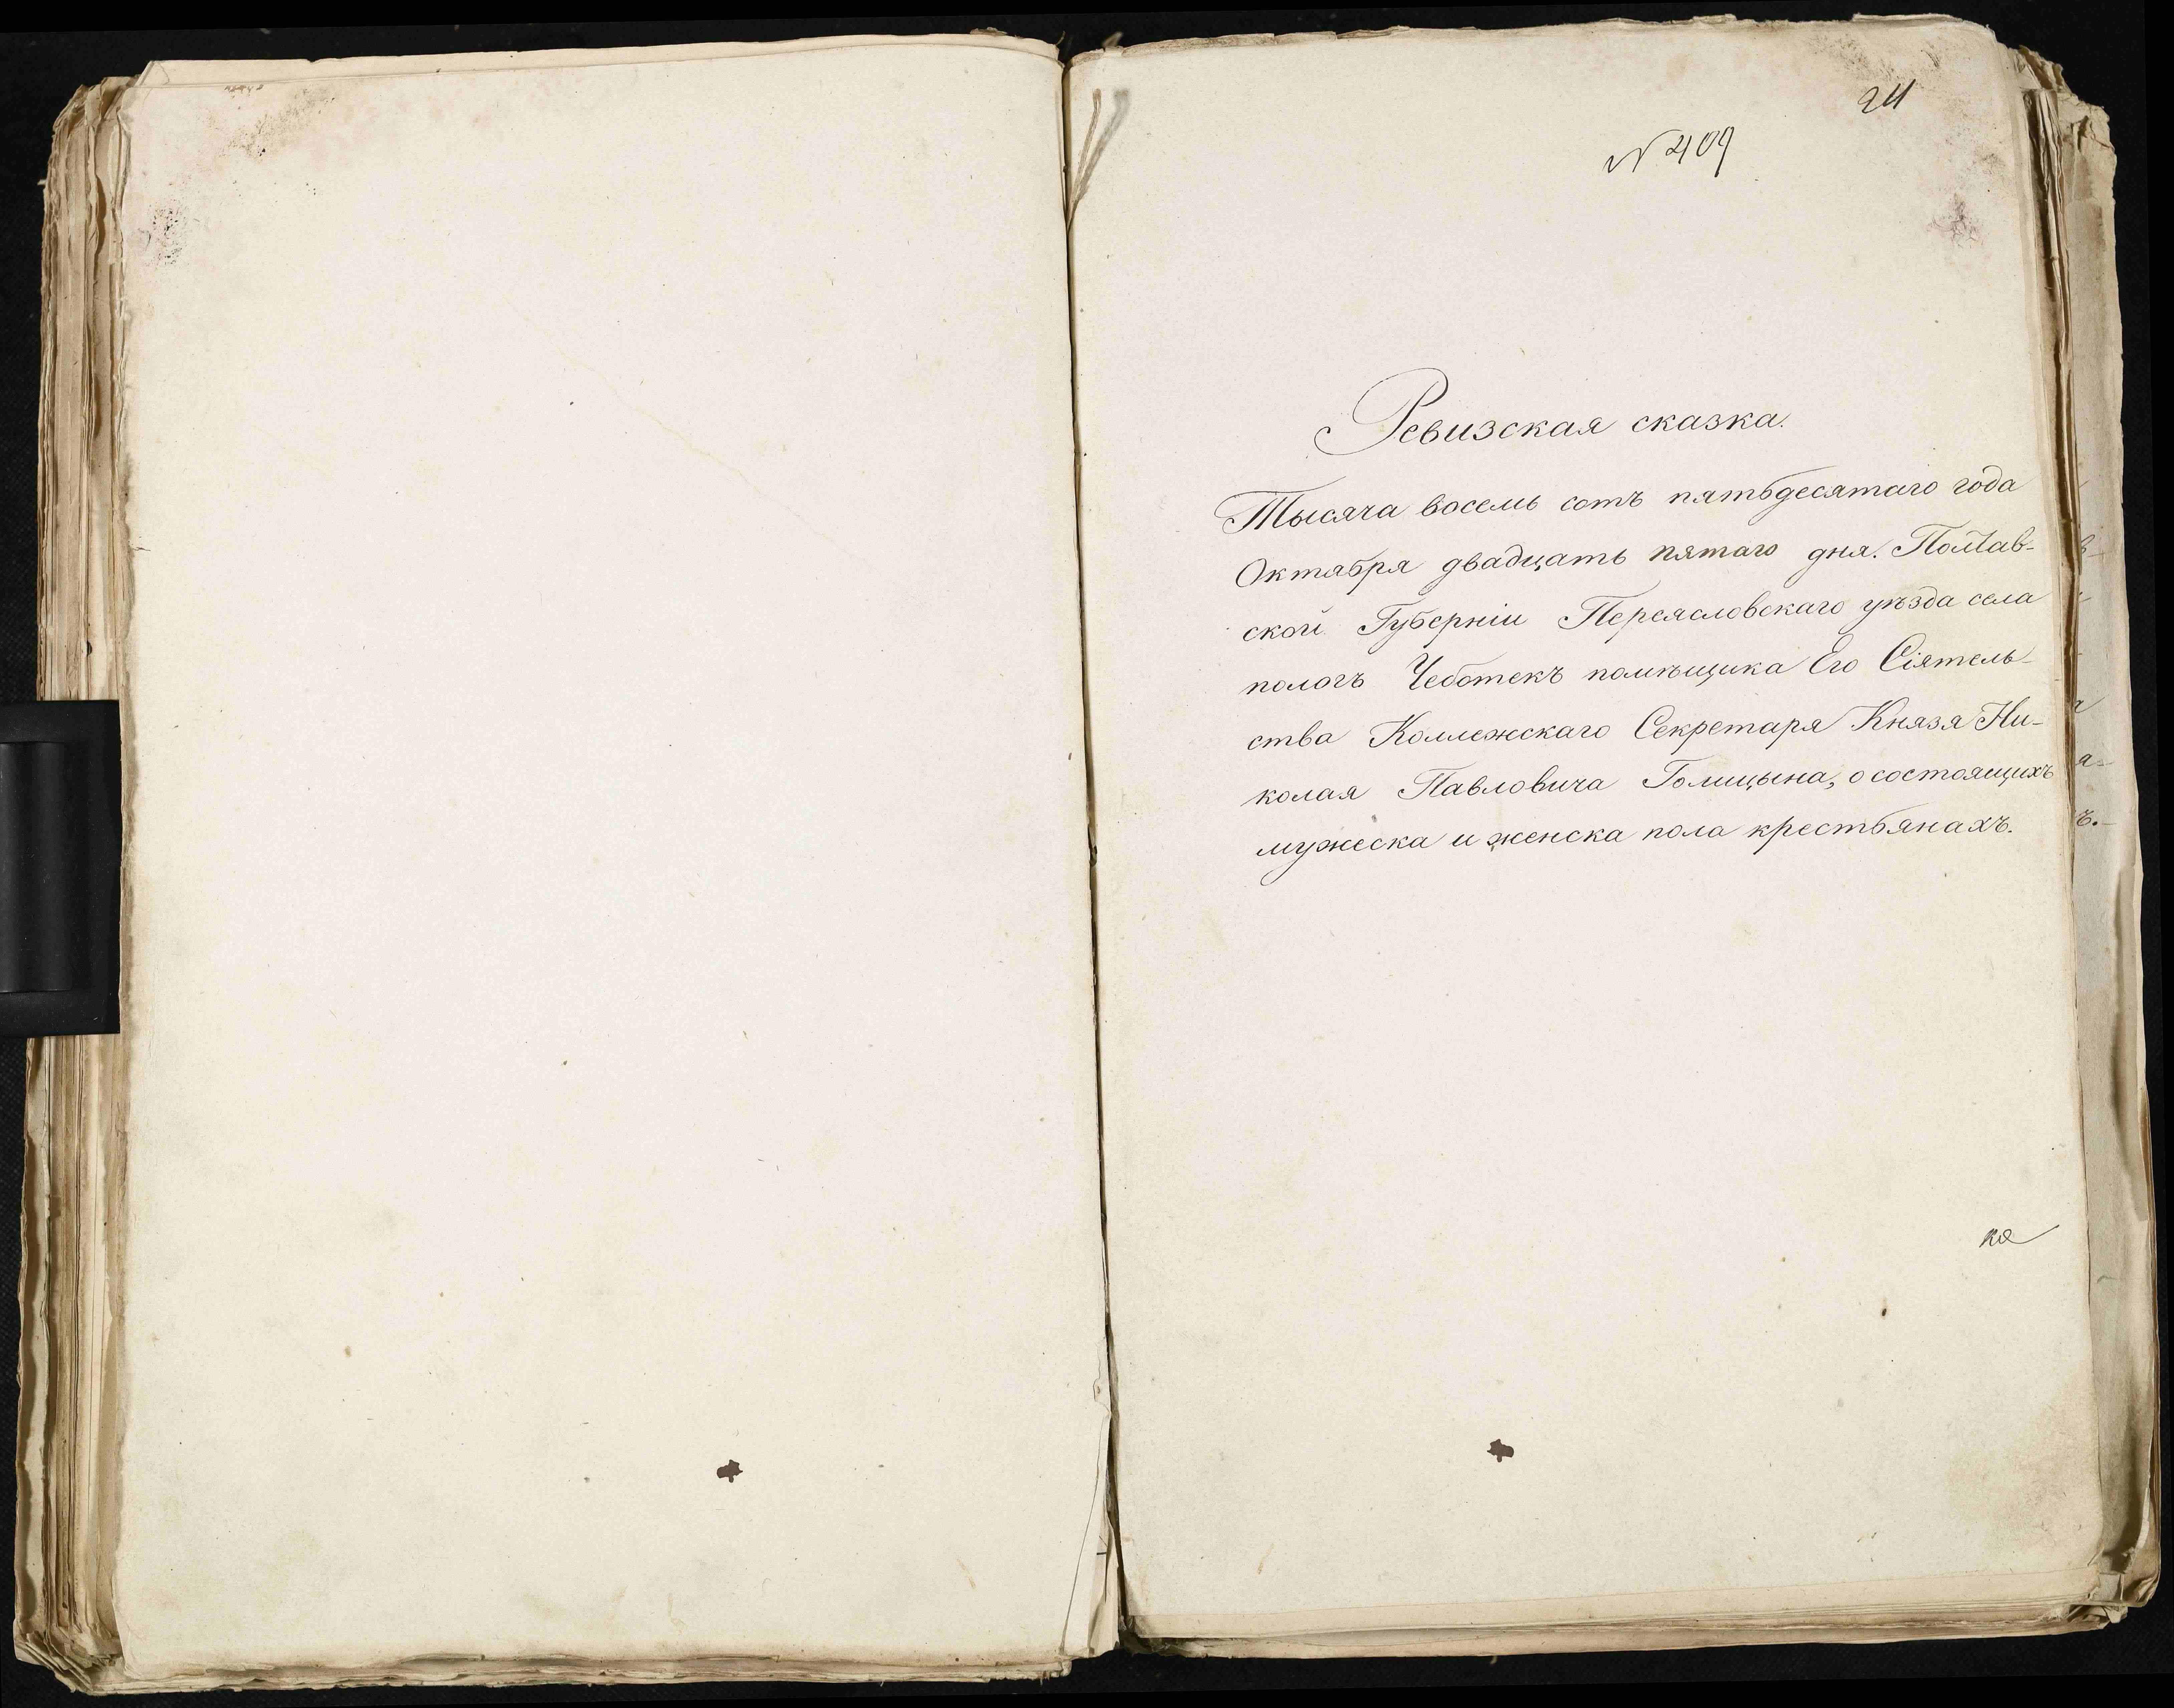 211
№ 409
Ревизская сказка.
Тысяча восемь сотъ пятьдесятаго года
Октября двадцать пятаго дня. Полтав-
ской Губерніи Переясловскаго уѣзда села
пологъ Чеботекъ помѣщика Его Сіятель-
ства Коллежскаго Секретаря Князя Ни-
колая Павловича Голицына, о состоящихъ
мужеска и женска пола крестьянахъ.